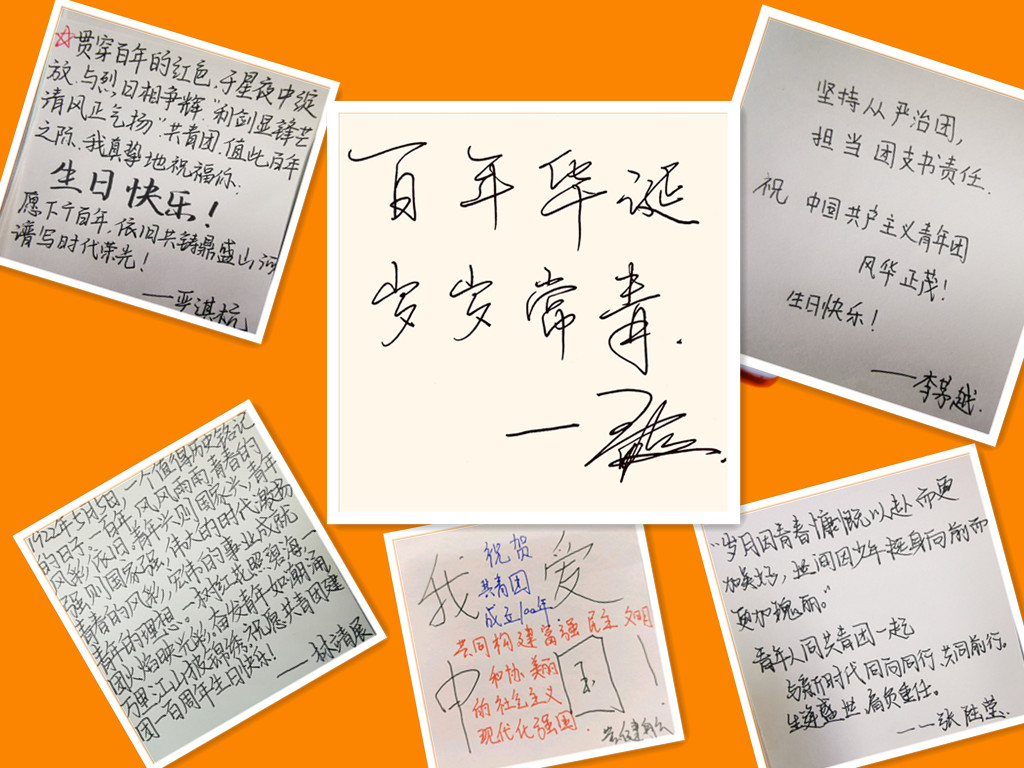 ☆贯穿百年的红色,于星夜中绽
放,与烈日相争辉,“利剑显锋芒
清风正气扬”共青团,值此百年
之际,我真挚地祝福你:
生日快乐!
愿下个百年,依旧共铸鼎盛山河
谱写时代荣光!
——严淇杭
百年华诞
岁岁常青.
坚持从严治团,
担当团支书责任.
祝 中国共产主义青年团
风华正茂!
生日快乐!
——李某越.
1922年5月5日,一个值得历史铭记
的日子,一百年,风风雨雨,青春的
风彩依旧。青年兴则国家兴,青年
强则国家强。伟大的时代激扬
青春的风彩,宏伟的事业成就
青年的理想。
团火焰映光彩,奋发青年如朝海
万里江山披锦绣,祝愿共青团建
团一百周年生日快乐!
——林清辰
我爱
中国!
祝贺
共青团
成立100年
共同构建富强 民主 文明
和协 美丽
的社会主义
现代化强国
“岁月因青春慷慨以赴而更
加美好,世间因少年挺身向前而
更加瑰丽。”
青年人同共青团一起
与新时代同向同行,共同前行。
生逢盛世,肩负重任。
——张陆莹.